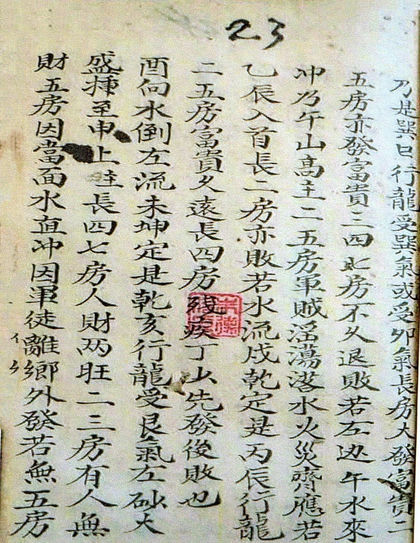 23
乃是巽巳行龍受巽氣或受卯氣長房大發富貴二
五房亦發富貴二四七房不久退敗若左边午水來
冲乃午山高主二五房軍賊淫蕩水火災齊應若
乙辰入首長二房亦敗若水流戌乾定是丙辰行龍
二五房富貴久遠長四房殘疾丁少先發後敗也
酉向水倒左流未坤定是乾亥行龍受艮氣左砂大
盛揷至申上註長四七房人財兩旺二三房有人無
財五房因當面水直冲因軍徒離鄉外發若無五房